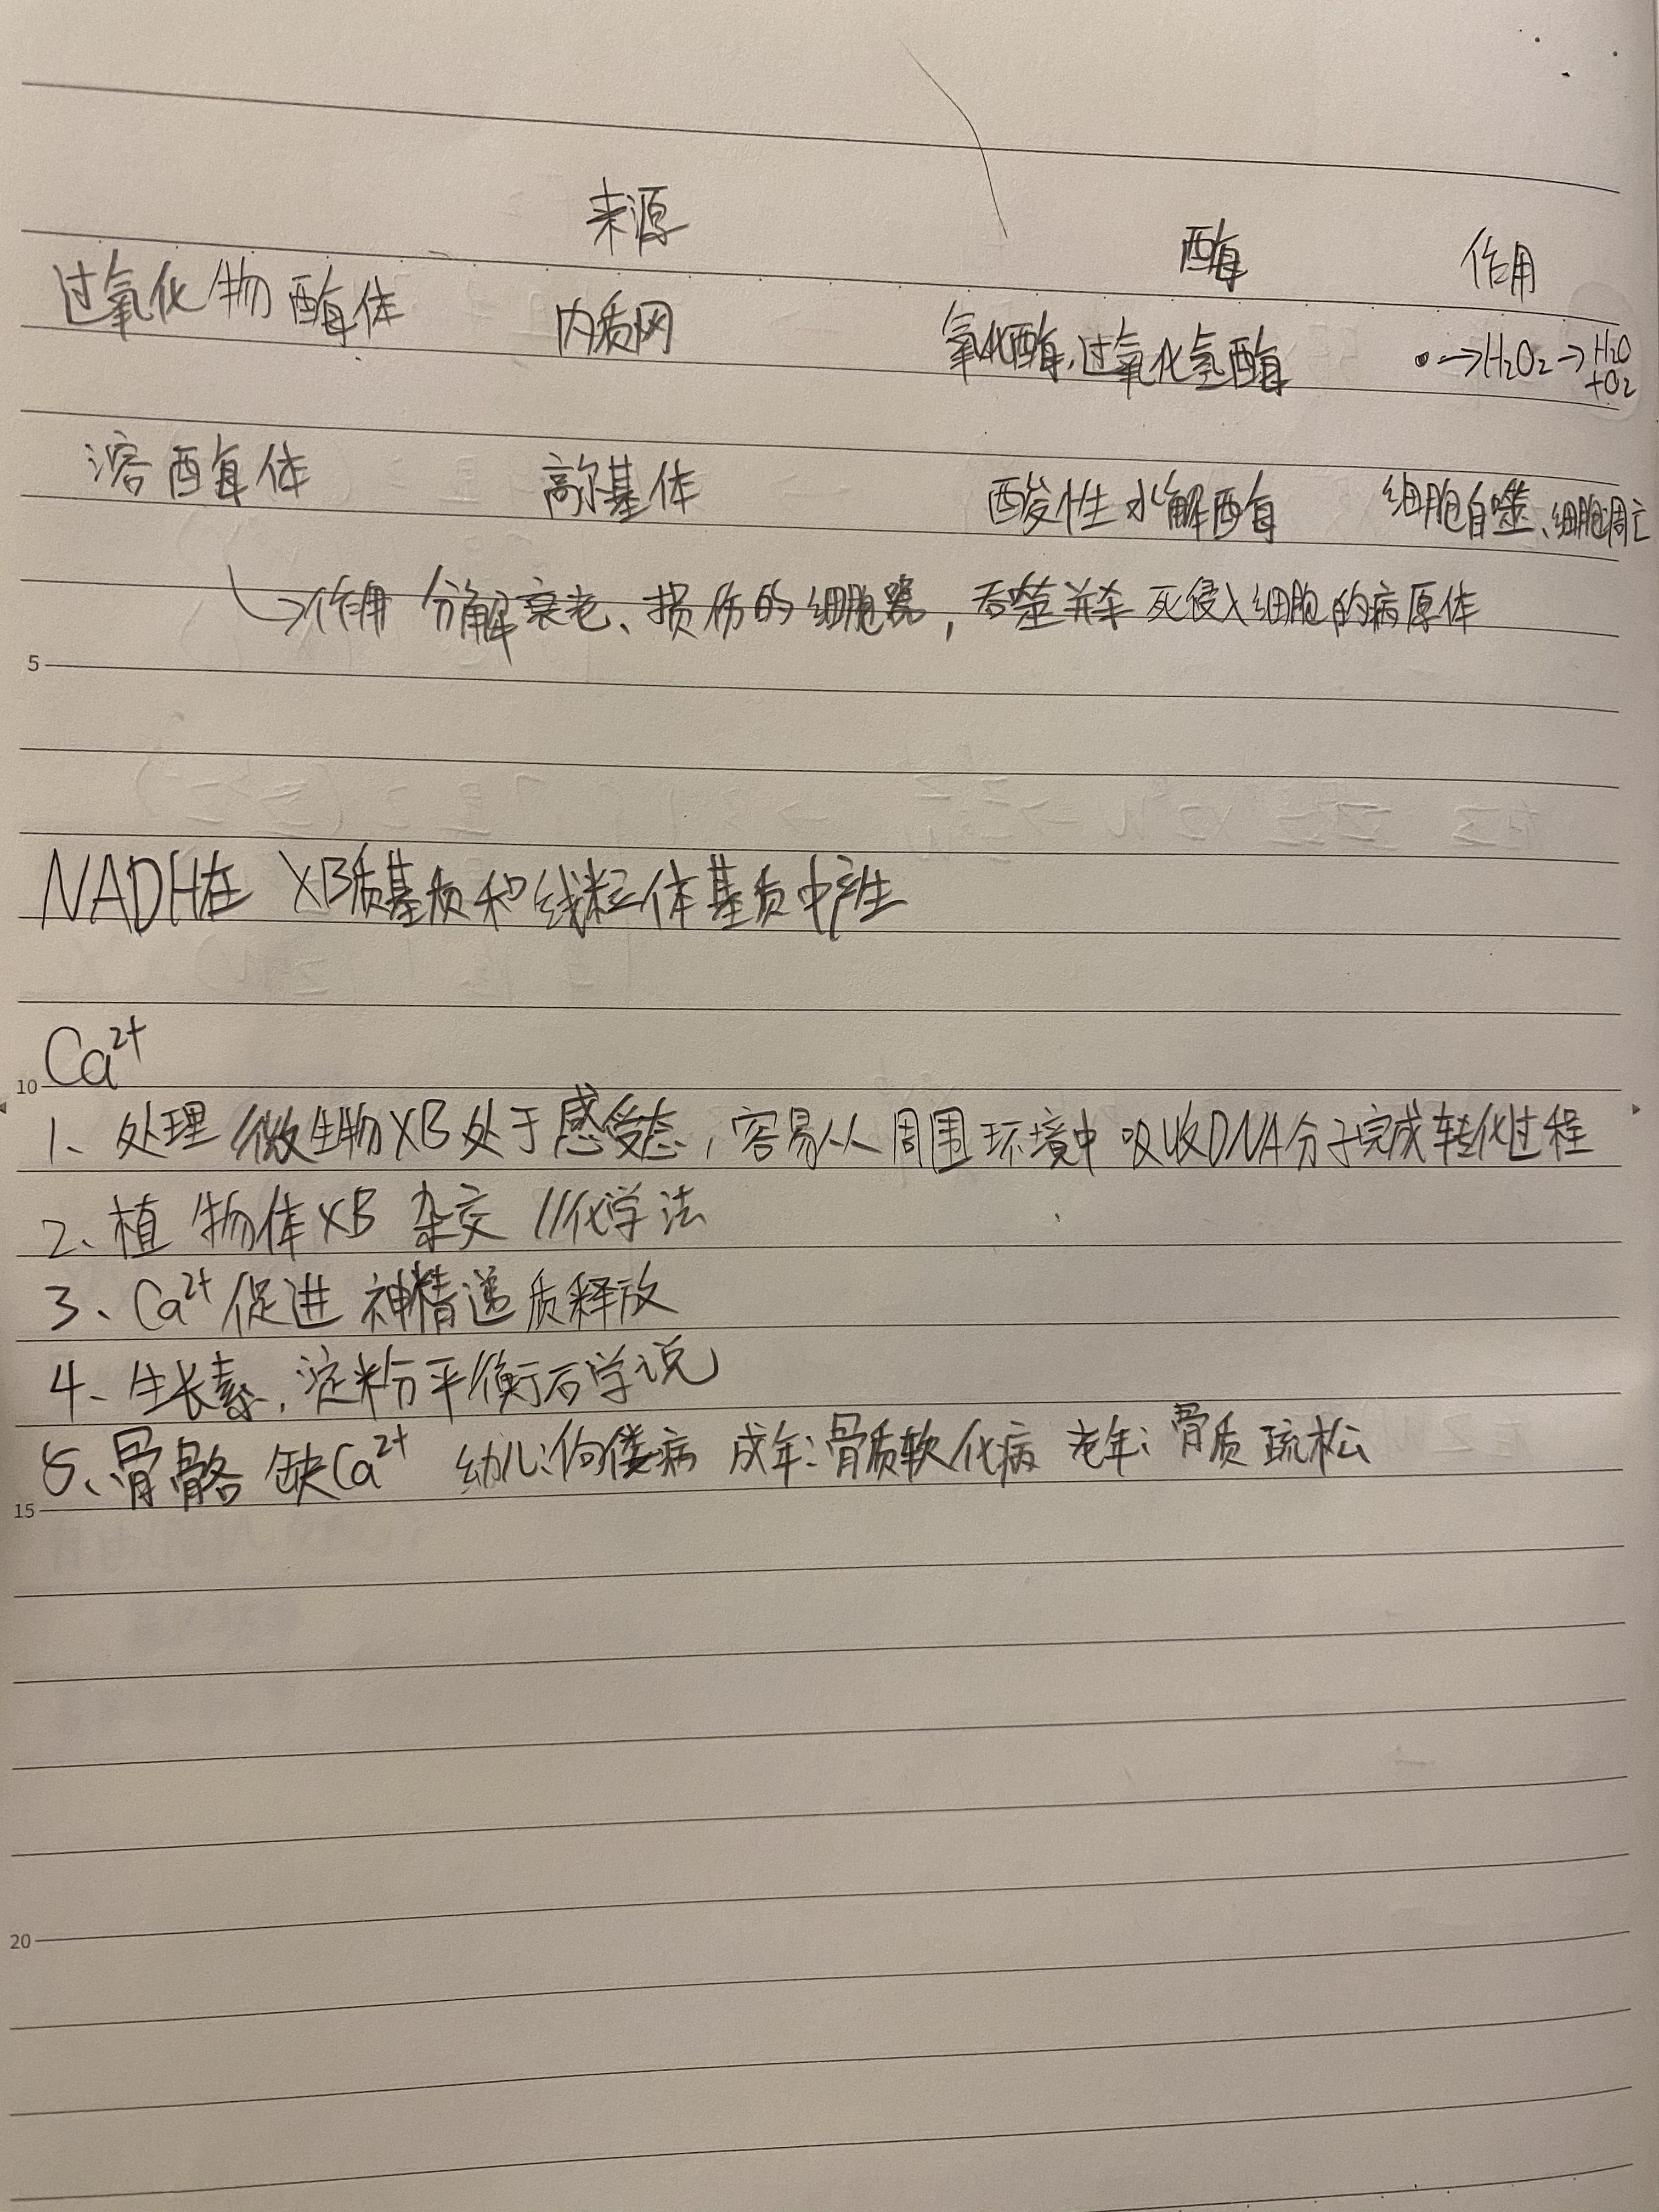 来源 酶 作用
过氧化物酶体 内质网 氧化酶、过氧化氢酶 →H₂O₂→H₂O+O₂
溶酶体 高尔基体 酸性水解酶 细胞自噬、细胞凋亡
5
↳作用 分解衰老、损伤的细胞器，吞噬并杀死侵入细胞的病原体
NADH在 XB质基质和线粒体基质中产生
10
Ca²⁺
1、处理微生物XB处于感受态，容易从周围环境中吸收DNA分子完成转化过程
2、植物体XB 杂交 化学法
3、Ca²⁺促进神经递质释放
4、生长素、淀粉平衡石学说
15
5、骨骼 缺Ca²⁺ 幼儿:佝偻病 成年:骨质软化病 老年:骨质疏松
20